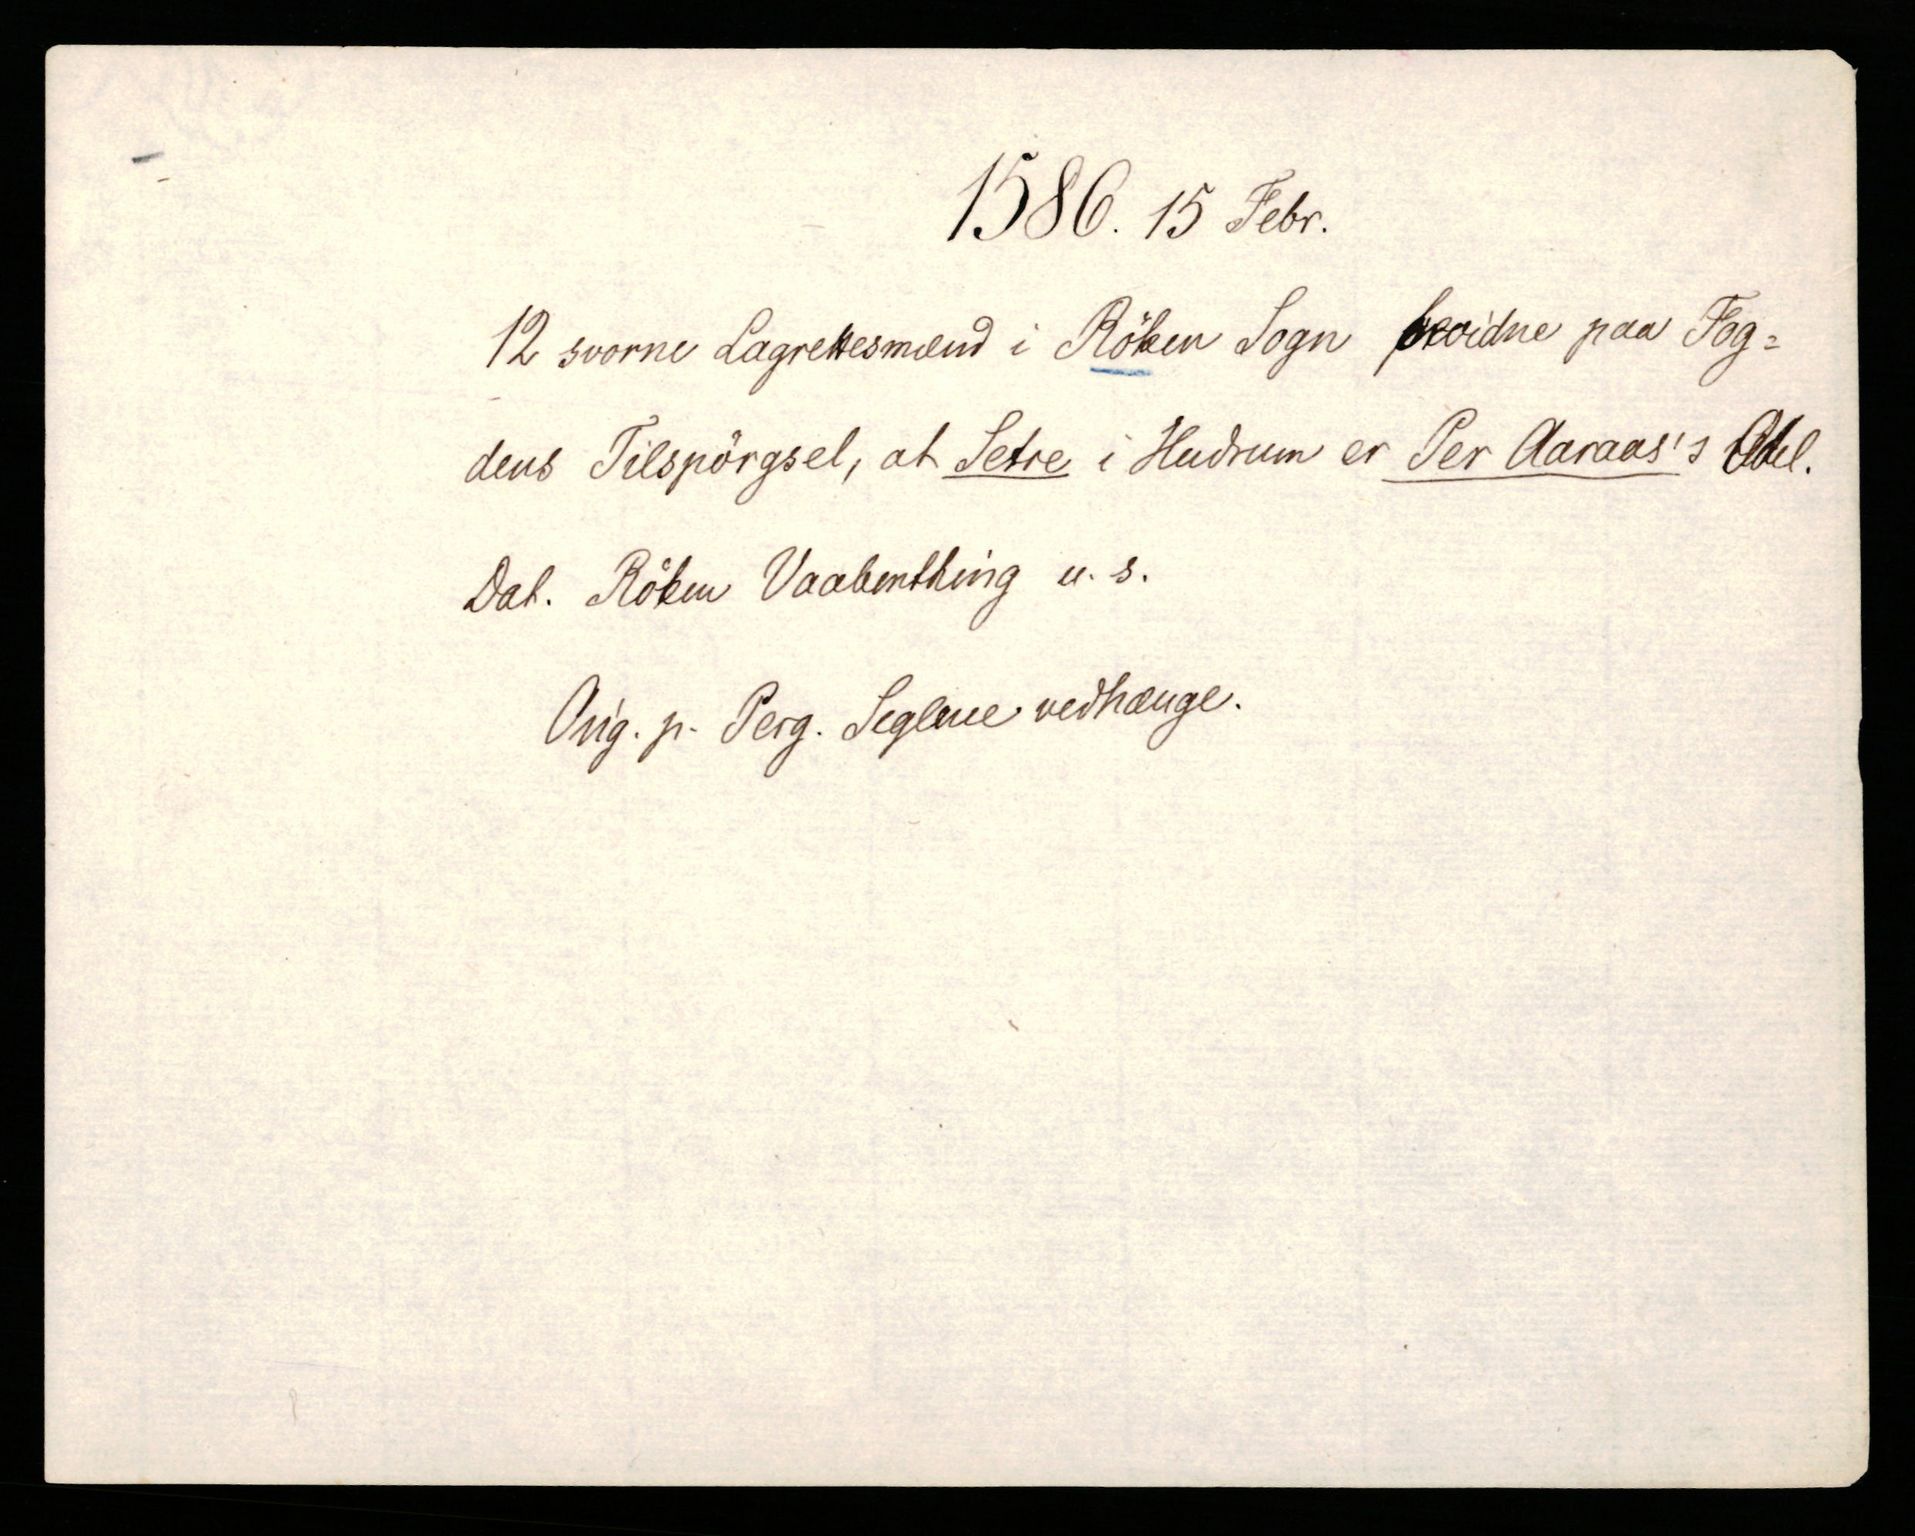 1586. 15 Febr.
12 svorne Lagrettesmænd i Röken Sogn bevidne paa Fog=
dens Tilspörgsel, at Setre i Hudrum er Per Aaraas's Odel.
Dat. Röken Vaabenthing u. s.
Orig. p. Perg. Seglene vedhænge.